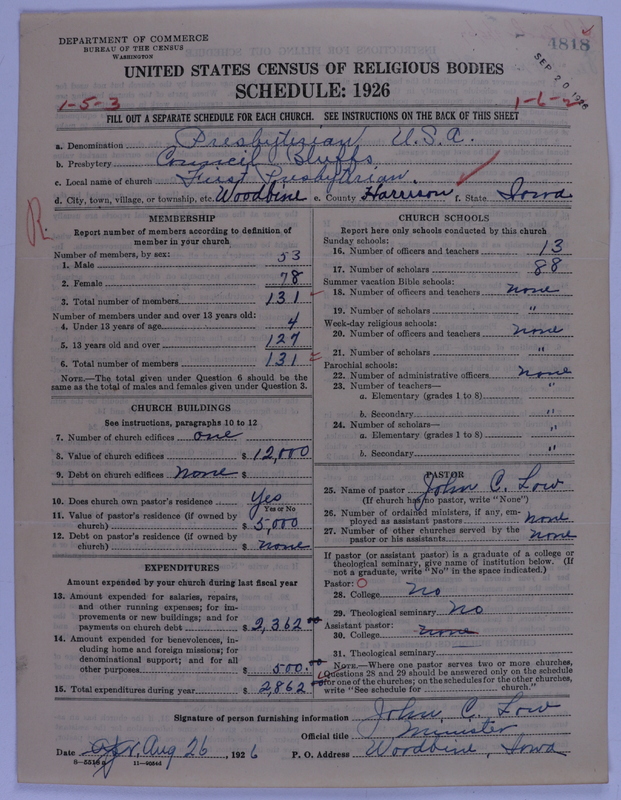 DEPARTMENT OF COMMERCE
BUREAU OF THE CENSUS
WASHINGTON
4818
SEP 20 1926
UNITED STATES CENSUS OF RELIGIOUS BODIES
SCHEDULE: 1926
1-5-3
1-6-2
FILL OUT A SEPARATE SCHEDULE FOR EACH CHURCH. SEE INSTRUCTIONS ON THE BACK OF THIS SHEET
a. Denomination Presbyterian U.S.A.
b. Presbytery Council Bluffs
c. Local name of church First Presbyterian
d. City, town, village, or township, etc. Woodbine e. County Harrison f. State Iowa
R.
MEMBERSHIP
Report number of members according to definition of
member in your church
Number of members, by sex:
1. Male 53
2. Female 78
3. Total number of members 131
Number of members under and over 13 years old:
4. Under 13 years of age 4
5. 13 years old and over 127
6. Total number of members 131
NOTE.—The total given under Question 6 should be the
same as the total of males and females given under Question 3.
CHURCH BUILDINGS
See instructions, paragraphs 10 to 12
7. Number of church edifices one
8. Value of church edifices $ 12,000
9. Debt on church edifices none $
10. Does church own pastor's residence Yes
Yes or No
11. Value of pastor's residence (if owned by
church) $ 5,000
12. Debt on pastor's residence (if owned by
church) $ none
EXPENDITURES
Amount expended by your church during last fiscal year
13. Amount expended for salaries, repairs,
and other running expenses; for im-
provements or new buildings; and for
payments on church debt $ 2,362 00
14. Amount expended for benevolences, in-
cluding home and foreign missions; for
denominational support; and for all
other purposes $ 500.00
15. Total expenditures during year $ 2,862 00
CHURCH SCHOOLS
Report here only schools conducted by this church
Sunday schools:
16. Number of officers and teachers 13
17. Number of scholars 88
Summer vacation Bible schools:
18. Number of officers and teachers none
19. Number of scholars "
Week-day religious schools:
20. Number of officers and teachers none
21. Number of scholars "
Parochial schools:
22. Number of administrative officers none
23. Number of teachers— "
a. Elementary (grades 1 to 8)
b. Secondary "
24. Number of scholars— "
a. Elementary (grades 1 to 8) "
b. Secondary "
PASTOR
25. Name of pastor John C. Low
(If church has no pastor, write "None")
26. Number of ordained ministers, if any, em-
ployed as assistant pastors none
27. Number of other churches served by the
pastor or his assistants none
If pastor (or assistant pastor) is a graduate of a college or
theological seminary, give name of institution below. (If
not a graduate, write "No" in the space indicated.)
Pastor: O
28. College No
29. Theological seminary No
Assistant pastor:
30. College none
31. Theological seminary
NOTE.—Where one pastor serves two or more churches,
Questions 28 and 29 should be answered only on the schedule
for one of the churches; on the schedules for the other churches,
write "See schedule for church."
Signature of person furnishing information John C. Low
Official title Minister
Date Aug 26, 1926 P. O. Address Woodbine, Iowa